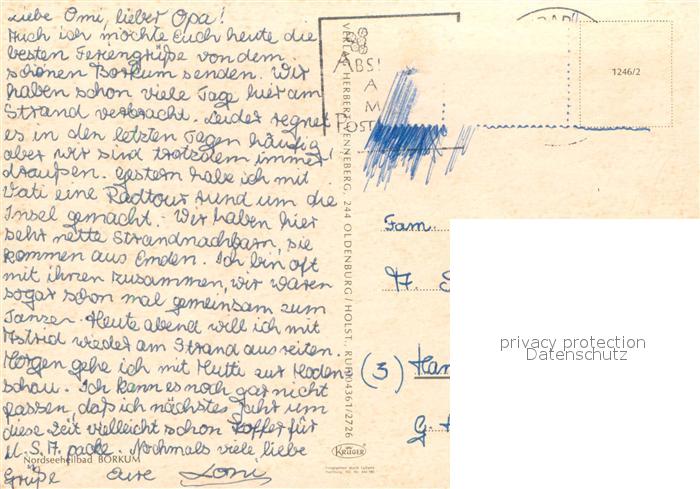 Liebe Omi, lieber Opa!
Auch ich möchte Euch heute die
besten Feriengrüße von dem
schönen Borkum senden. Wir
haben schon viele Tage hier am
Strand verbracht. Leider regnet
es in den letzten Tagen häufig
aber wir sind trotzdem immer
draußen. Gestern habe ich mit
Vati eine Radtour rund um die
Insel gemacht. - Wir haben hier
sehr nette Strandnachbarn, sie
kommen aus Emden. Ich bin oft
mit ihnen zusammen, wir waren
sogar schon mal gemeinsam zum
Tanzen. Heute abend will ich mit
Astrid wieder am Strand ausreiten.
Morgen gehe ich mit Mutti zur Moden
schau. Ich kann es noch gar nicht
fassen, daß ich nächstes Jahr um
diese Zeit vielleicht schon Koffer für
U.S.A. packe. Nochmals viele liebe
Grüße Eure Loni
Nordseeheilbad BORKUM
VERLAG HERBERT VENNEBERG, 244 OLDENBURG/HOLST., RUF 04361/2726
KRÜGER
1246/2
ABS!
AM
POST
Fam.
(3) Han
privacy protection
Datenschutz